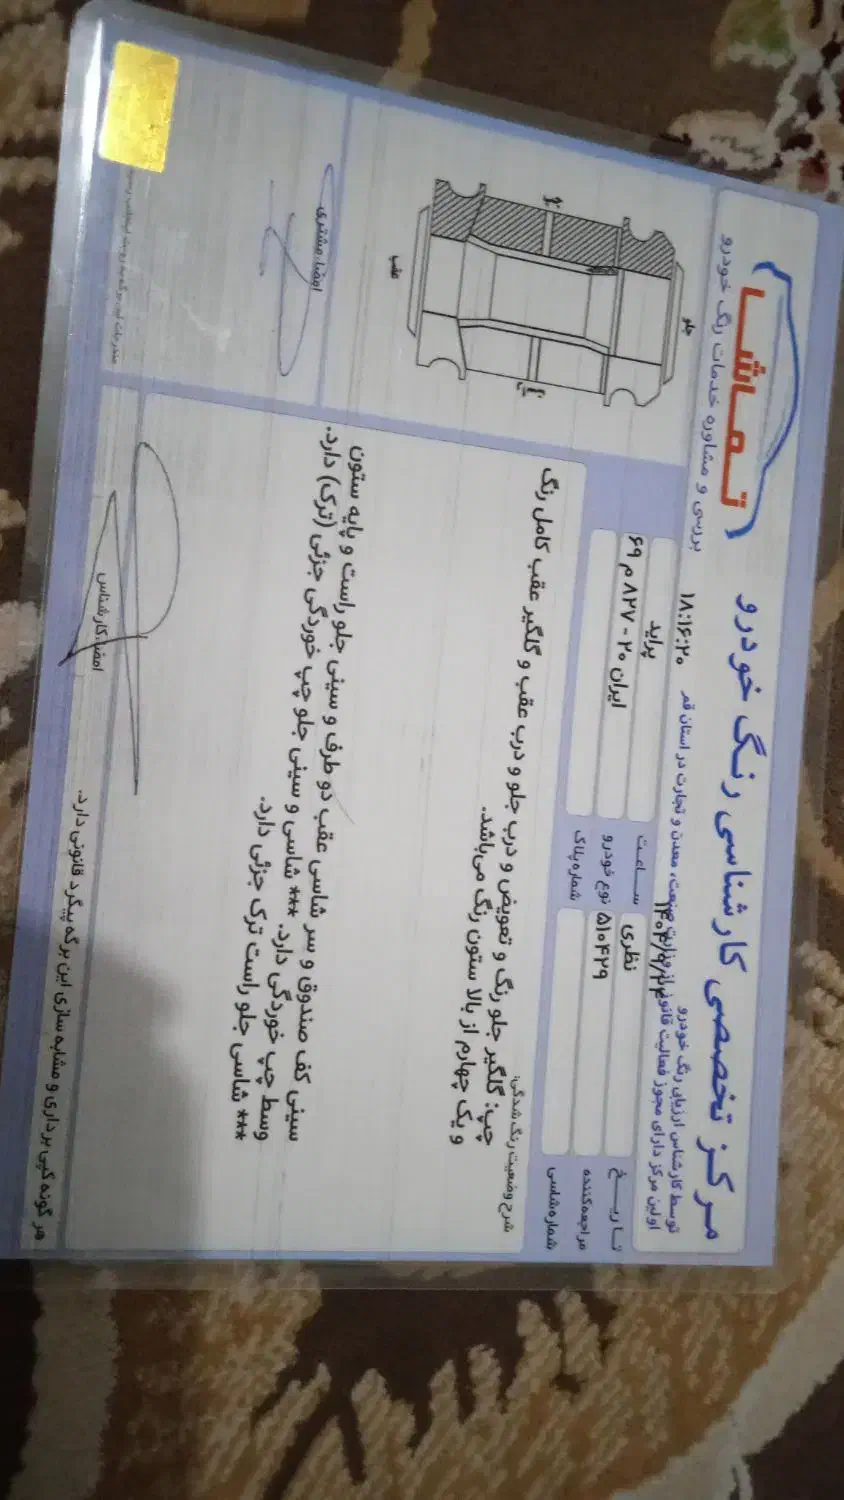 مرکز تخصصی کارشناسی رنگ خودرو
توسط کارشناس ارزیابی رنگ خودرو
اولین مرکز دارای مجوز فعالیت قانونی از وزارت صنعت، معدن و تجارت در استان قم
تماشا
بررسی و مشاوره خدمات رنگ خودرو
تاریخ
ساعت ۱۸:۱۶:۲۰
مراجعه کننده نظری
نوع خودرو پراید
شماره شاسی ۵۱۰۴۲۹
شماره پلاک ایران ۲۰ - ۸۲۷ م ۶۹
شرح وضعیت رنگ شدگی:
چپ: گلگیر جلو رنگ و تعویض و درب جلو و درب عقب و گلگیر عقب کامل رنگ
و یک چهارم از بالا ستون رنگ می‌باشد.
جلو
چپ
عقب
سینی کف صندوق و سر شاسی عقب دو طرف و سینی جلو راست و پایه ستون
وسط چپ خوردگی دارد. *** شاسی و سینی جلو چپ خوردگی جزئی (ترک) دارد.
*** شاسی جلو راست ترک جزئی دارد.
امضاء مشتری
امضاء کارشناس
هر گونه کپی برداری و مشابه سازی این برگه پیگرد قانونی دارد.